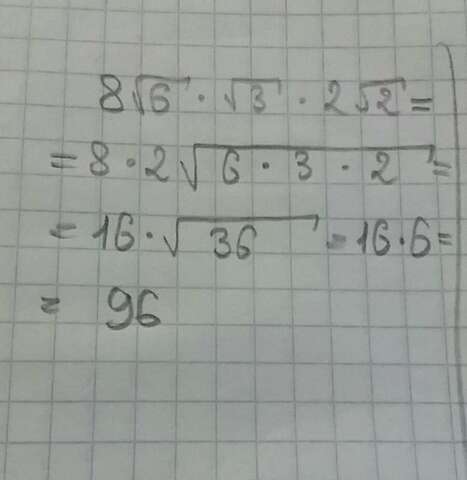 8√6 · √3 · 2√2 =
= 8 · 2√6 · 3 · 2 =
= 16 · √36 = 16 · 6 =
= 96